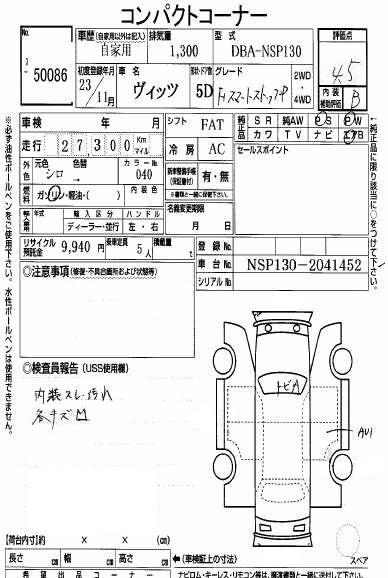 コンパクトコーナー
No.
50086
車歴(自家用以外は記入) 排気量 型式
自家用 1,300 DBA-NSP130
評価点
4.5
初度登録年月 車名 形状・ドア数 グレード
23/11月 ヴィッツ 5D FスマートストップP
2WD
4WD
内装
補助評価
B
車検 年 月
走行 27,300 Km
マイル
シフト FAT
純正品
SR 純AW PS PW
カワ TV ナビ エアB
外色 元色 色替 カラーNo.
シロ→ 040
冷房 AC
セールスポイント
燃料 ガソリン・軽油・( ) 内装色
新車整備手帳
(保証書付) 有・無
輸入車 年式 輸入区分 ハンドル
ディーラー・並行 左・右
名義変更期限
月 日
リサイクル
預託金 9,940円 乗車定員 5人 積載量 t
登録No.
車台No. NSP130-2041452
シリアルNo.
◎注意事項(修復・不具合箇所および状態等)
◎検査員報告(USS使用欄)
内装スレ・汚れ
各キズ凹
トビA
AU1
【荷台内寸】約 x x (cm)
長さ cm 幅 cm 高さ cm ←(車検証上の寸法)
スペア
希望出品コーナー
ナビロム・キーレス・リモコン等は、
※必ず油性ボールペンをご使用下さい。水性ボールペンは使用できません。